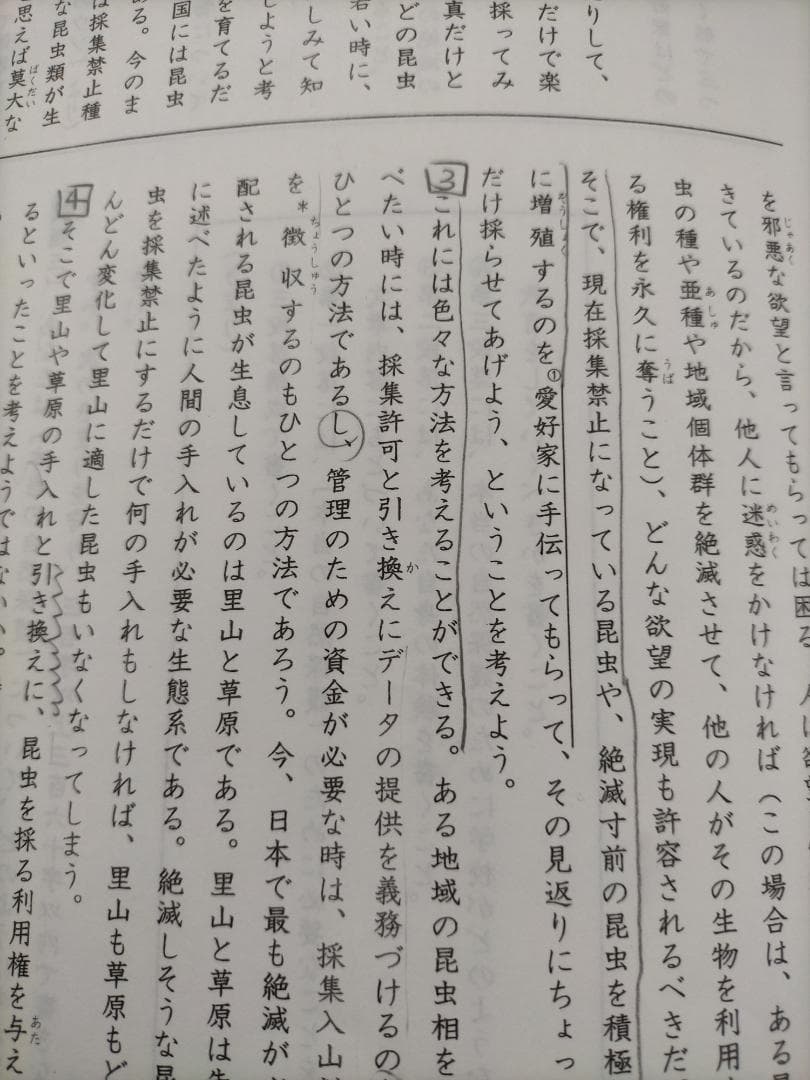 りして、
だけで楽
採ってみ
真だけと
どの昆虫
若い時に、
しみて知
しようと考
を育てるだ
国には昆虫
ある。今のま
は採集禁止種
な昆虫類が生
と思えば莫大な
ばくだい
を邪悪な欲望と言ってもらっては困る
じゃあく
きているのだから、他人に迷惑をかけなければ(この場合は、ある
めいわく
虫の種や亜種や地域個体群を絶滅させて、他の人がその生物を利用
あしゅ
る権利を永久に奪うこと)、どんな欲望の実現も許容されるべきだ
うば
そこで、現在採集禁止になっている昆虫や、絶滅寸前の昆虫を積極
に増殖するのを①愛好家に手伝ってもらって、その見返りにちょっ
ぞうしょく
だけ採らせてあげよう、ということを考えよう。
3 これには色々な方法を考えることができる。ある地域の昆虫相を
べたい時には、採集許可と引き換えにデータの提供を義務づけるの
か
ひとつの方法であるし、管理のための資金が必要な時は、採集入山
を*徴収するのもひとつの方法であろう。今、日本で最も絶滅が
ちょうしゅう
配される昆虫が生息しているのは里山と草原である。里山と草原は
に述べたように人間の手入れが必要な生態系である。絶滅しそうな
虫を採集禁止にするだけで何の手入れもしなければ、里山も草原もど
んどん変化して里山に適した昆虫もいなくなってしまう。
4 そこで里山や草原の手入れと引き換えに、昆虫を採る利用権を与え
あた
るといったことを考えようではないか。